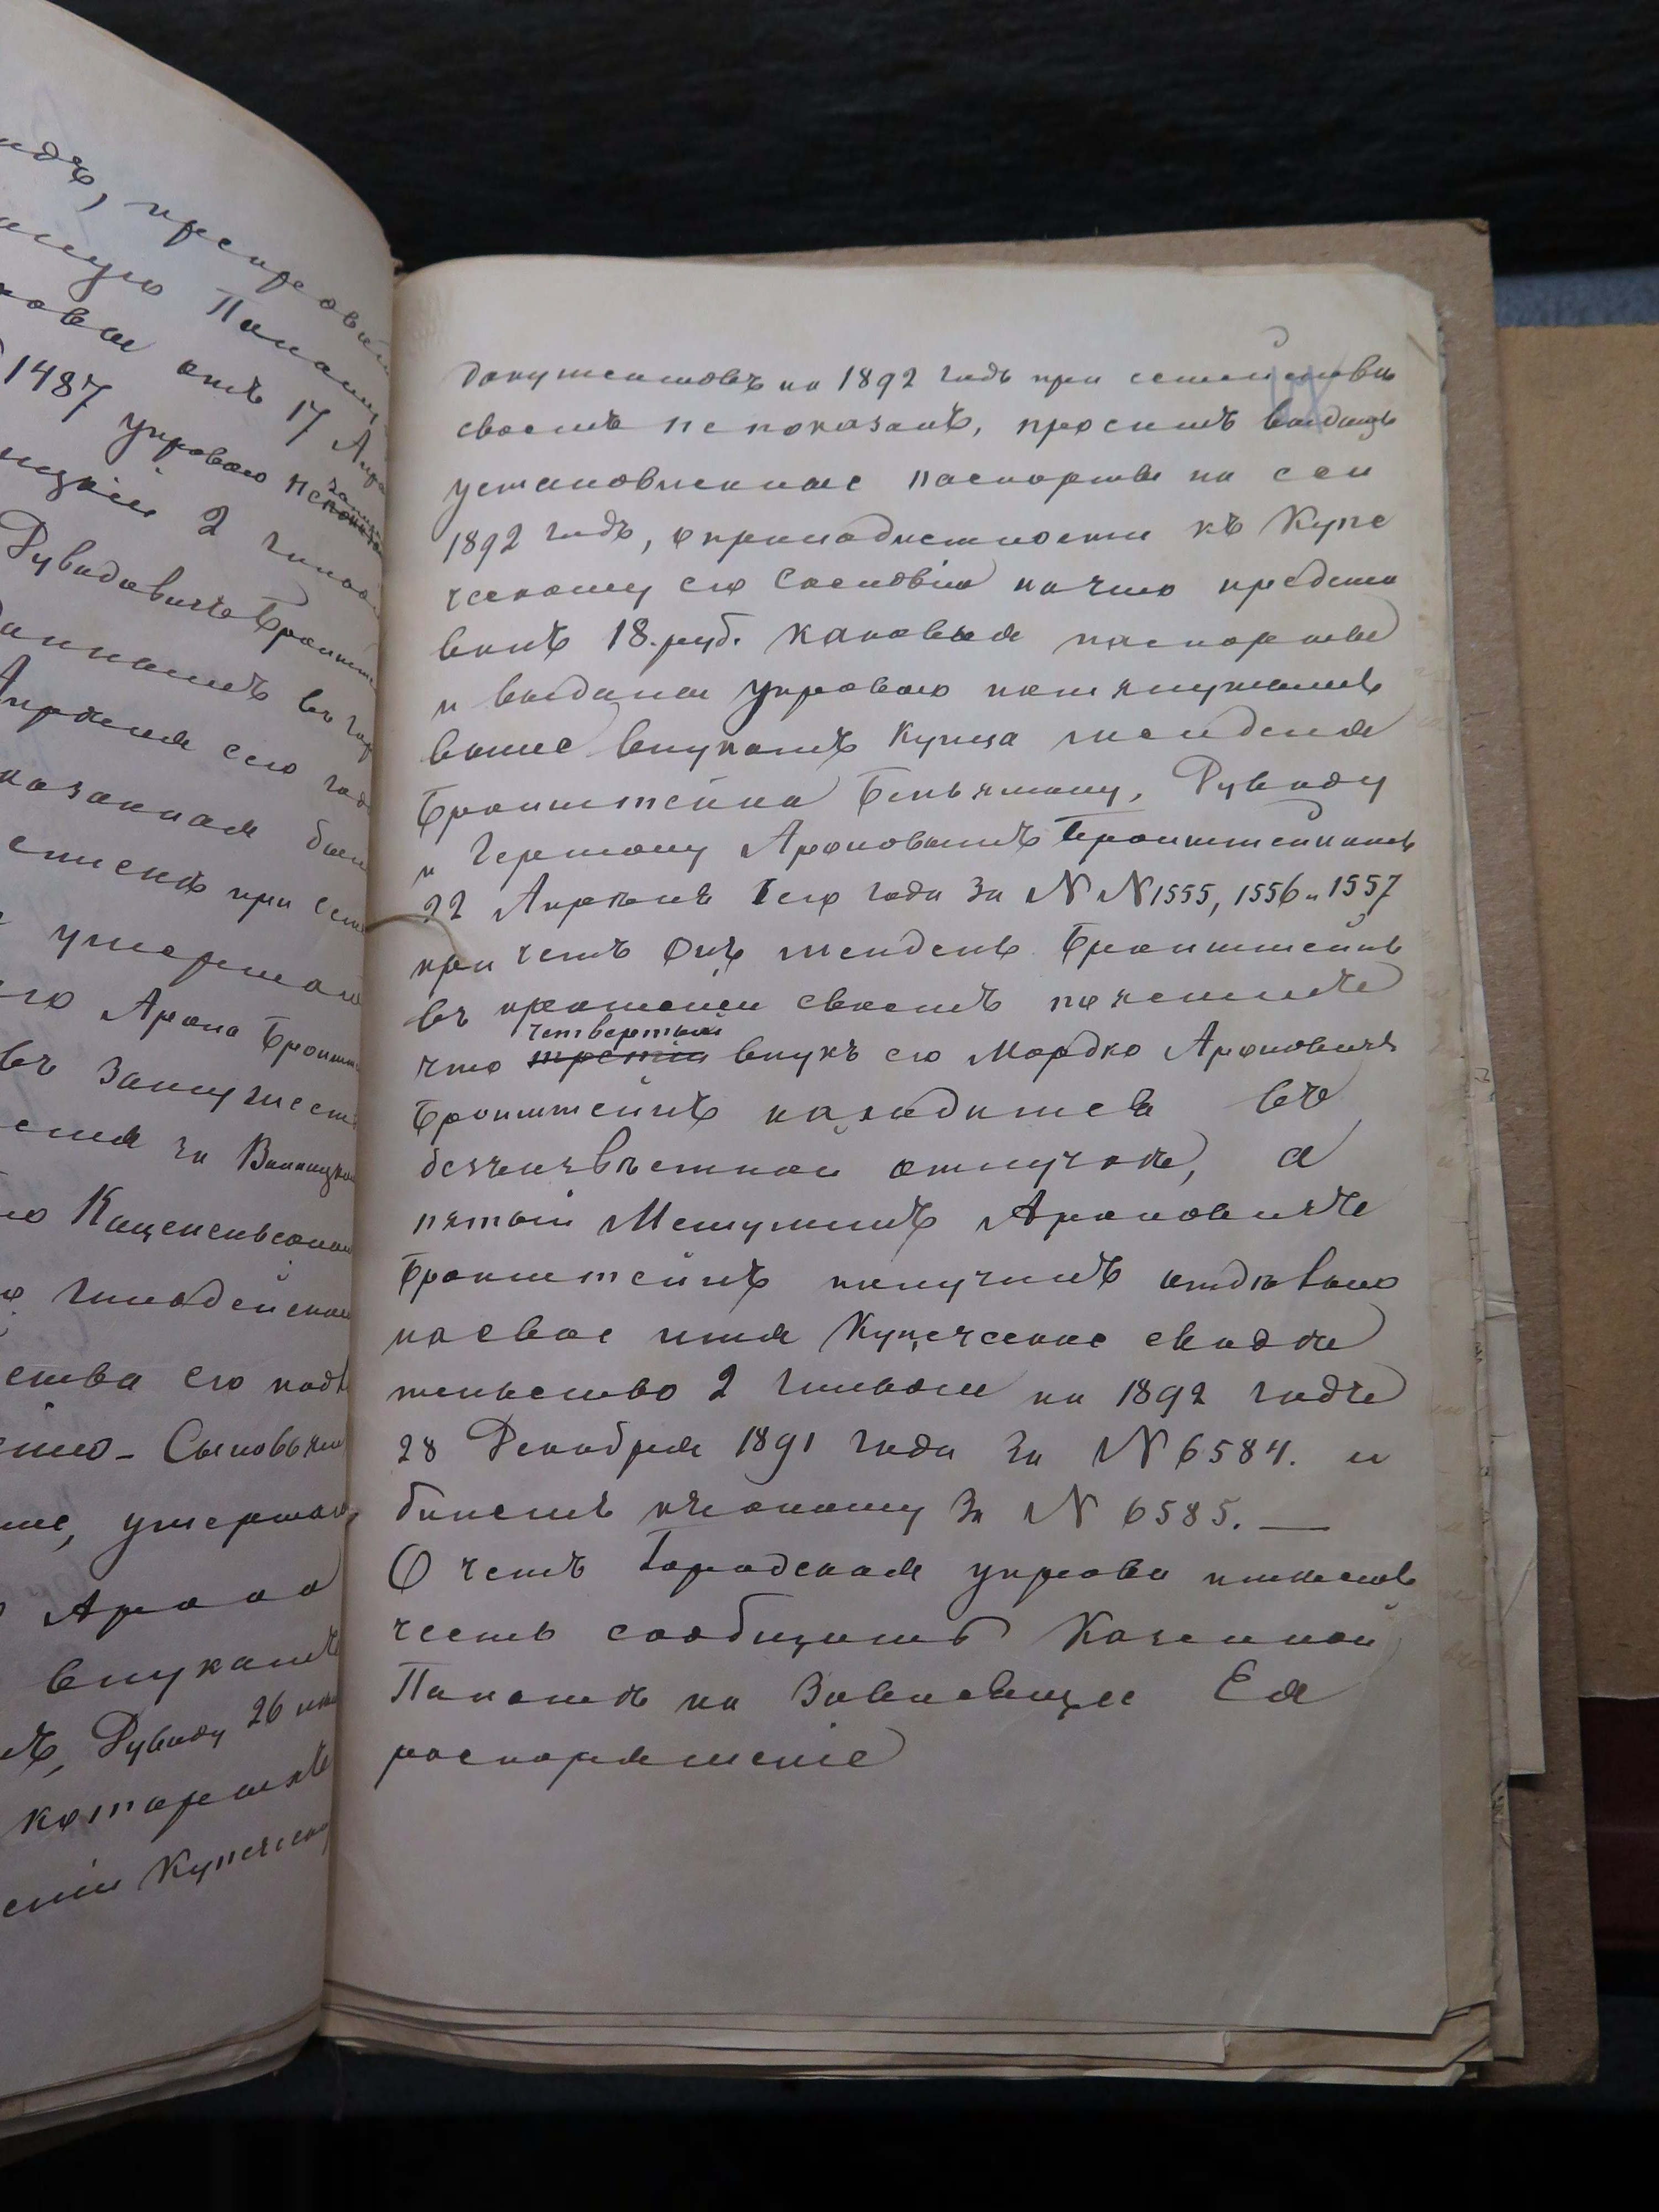 идъ, препровож
аную Палату
ковая отъ 17 Апр
1487 управою не
ницкій 2 гильд
Рувидовичъ Бронште
Апрѣля сего года
казанная были
списокъ при сем
умершаго
го Арона Бронште
въ замужеств
за Винницким
Каценельсоном
ства его подъ
Сыновьям
умершаго
Арона
внукамъ
Рувиду 26
которымъ
Купеческ
документовъ на 1892 годъ при семействѣ
своемъ не показалъ, проситъ выдать
установленные паспорты на сей
1892 годъ, о принадлежности къ Купе
ческому его Сословію на что предста
вилъ 18. руб. каковыя паспорты
и выданы управою поименуемымъ
выше внукамъ Купца Менделя
Бронштейна Беньямину, Рувиду
и Герману Ароновымъ Бронштейнамъ
22 Апрѣля сего года за N N 1555, 1556 и 1557
при чемъ Онъ Мендель Бронштейнъ
въ прошеніи своемъ пояснилъ
четвертый
что третій внукъ его Мордко Ароновичъ
Бронштейнъ находится въ
безъизвѣстной отлучкѣ, а
пятый Мешулимъ Ароновичъ
Бронштейнъ получилъ отдѣльно
на свое имя Купеческое свидѣ
тельство 2 гильдіи на 1892 годъ
28 Декабря 1891 года за N 6584. и
билетъ къ оному за N 6585. —
О чемъ Городская управа имѣетъ
честь сообщить Казенной
Палатѣ на Зависящее Ея
распоряженіе